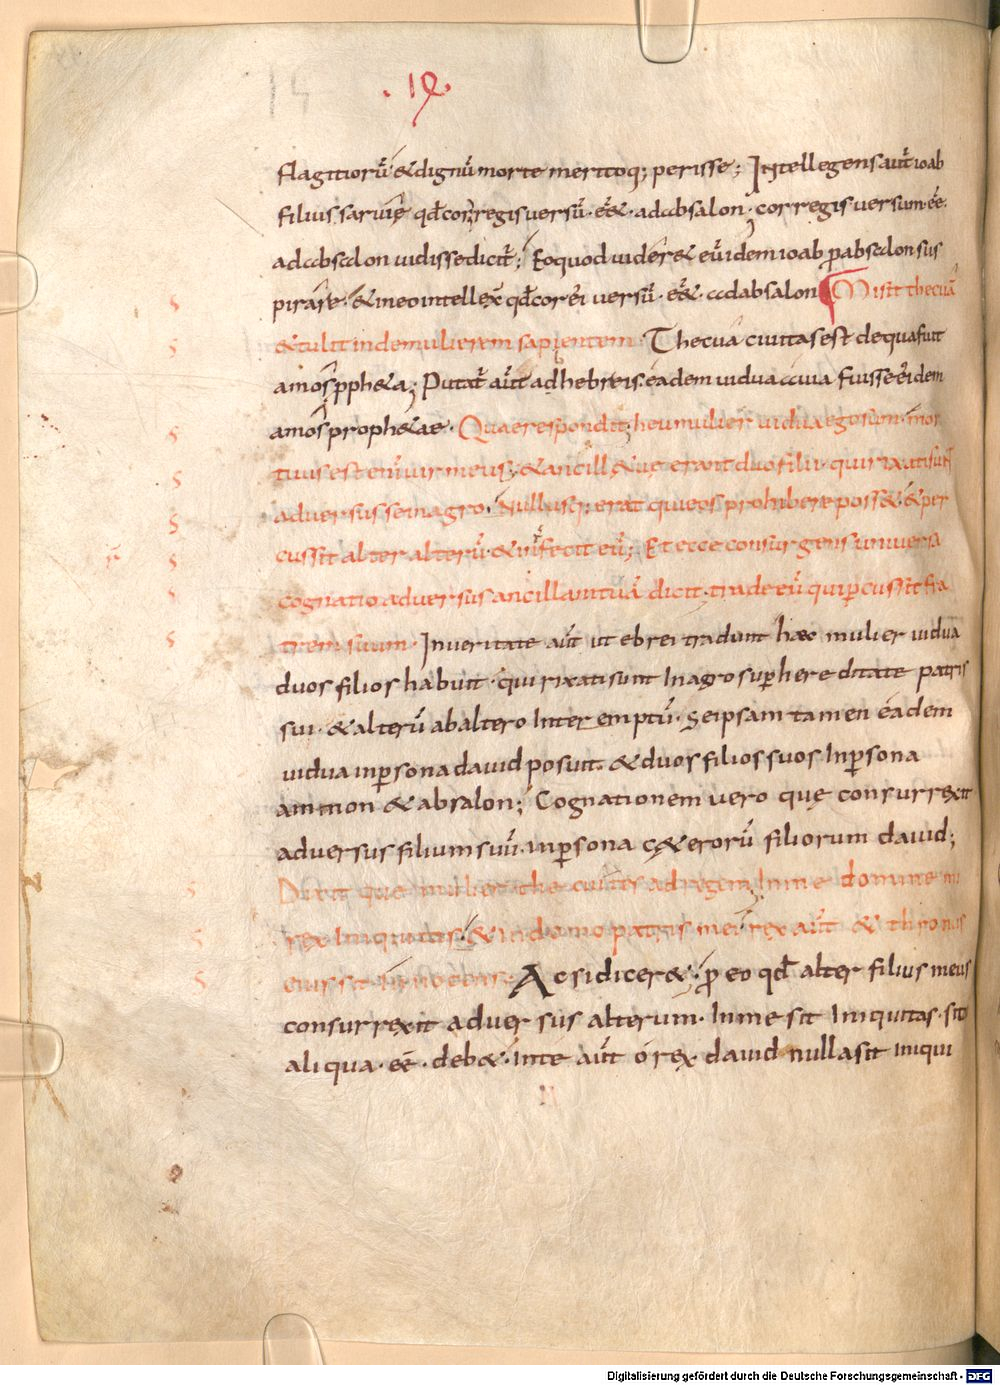 .IX.
flagitiorū & dignū morte meritoq; perisse; Intellegens aut̄ ioab
filius sarvię qđ cor regis versū · eēt · ad absalon · cor regis versum · eē ·
ad absalon vidisse dicit̄; Eo quod viderēt eūdem ioab p̄ absalon sus
pirare · & in eo intellexit qđ cor ei versū · eēt · ad absalon Misit thecuā
& tulit inde mulierem sapientem · Thecua civitas est de qua fuit
amos p̄pheta; Putat̄ aut̄ ad hebreis eadem vidua avia fuisse eidem
amos prophetae · Quae respondit; heu mulier vidua ego sum · mor
tuus est enī vir meus; & ancillę tuę erant duo filii · qui rixati sunt
adversus se in agro · Nullusq; erat qui eos prohibere posset · & per
cussit alter alterū · & interfecit eū; Et ecce consurgens universa
cognatio adversus ancillam tuā dicit · trade eū qui p̄cussit fra
trem suum · In veritate aut̄ ut ebrei tradunt haec mulier vidua
duos filios habuit · qui rixati sunt In agro sup̄ hereditate patris
sui · & alterū ab altero Interemptū · Seipsam tamen eadem
vidua in p̄sona david posuit · & duos filios suos In p̄sona
ammon & absalon; Cognationem vero quę consurrexit
adversus filium suū · in p̄sona cęterorū filiorum david;
Dixitque mulier thecuites ad regem; In me domine mi
rex iniquitas · & in domo patris mei · rex aut̄ & thronus
eius sit innocens · Ac si diceret; p̄ eo qđ alter filius meus
consurrexit adversus alterum · In me sit Iniquitas · si tō
aliqua · eē · debet · In te aut̄ o rex david nulla sit iniqui
Digitalisierung gefördert durch die Deutsche Forschungsgemeinschaft - DFG